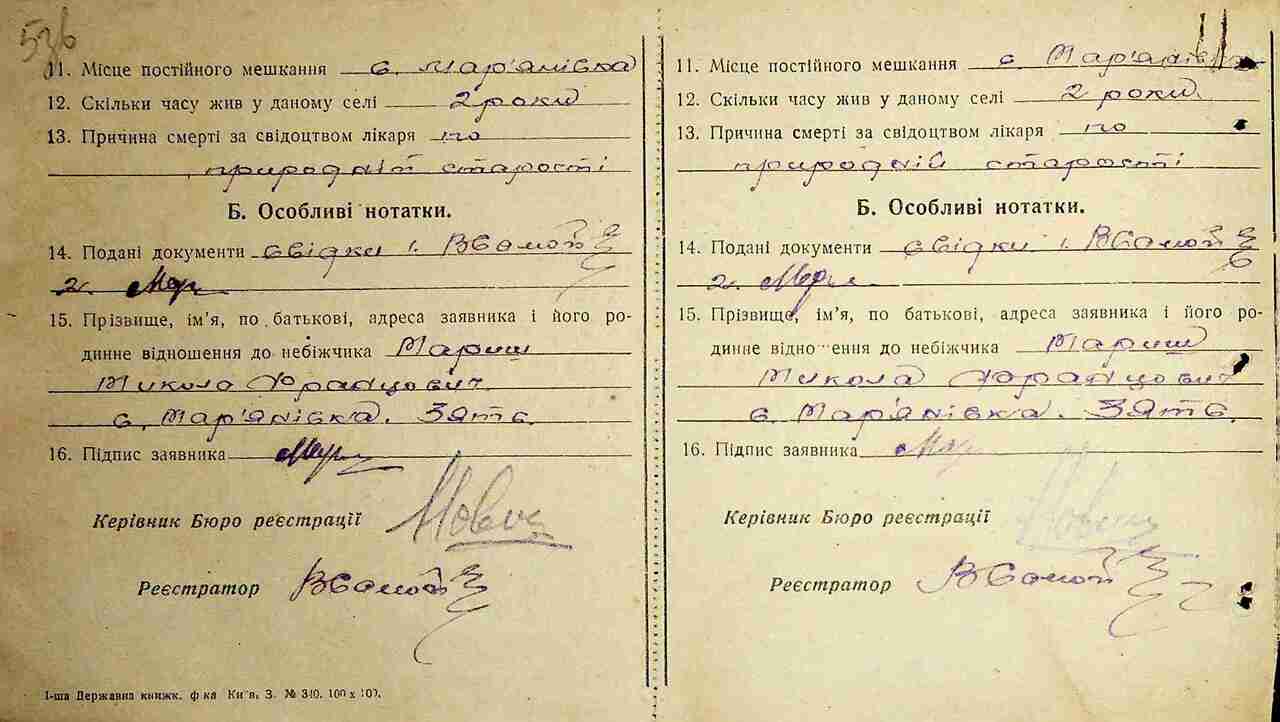 536
11. Місце постійного мешкання с. Мар'янівка
12. Скільки часу жив у даному селі 2 роки
13. Причина смерті за свідоцтвом лікаря по
природній старості
Б. Особливі нотатки.
14. Подані документи свідки 1.
2.
15. Прізвище, ім'я, по батькові, адреса заявника і його ро-
динне відношення до небіжчика Мариш
Микола Францович
с. Мар'янівка. Зять.
16. Підпис заявника
Керівник Бюро реєстрації
Реєстратор
І-ша Державна книжк. ф-ка Київ, З. № 340. 100 х 100.
11
11. Місце постійного мешкання с Мар'янівка
12. Скільки часу жив у даному селі 2 роки.
13. Причина смерті за свідоцтвом лікаря по
природній старості
Б. Особливі нотатки.
14. Подані документи свідки 1.
2.
15. Прізвище, ім'я, по батькові, адреса заявника і його ро-
динне відношення до небіжчика Мариш
Микола Францович
с. Мар'янівка. Зять.
16. Підпис заявника
Керівник Бюро реєстрації
Реєстратор